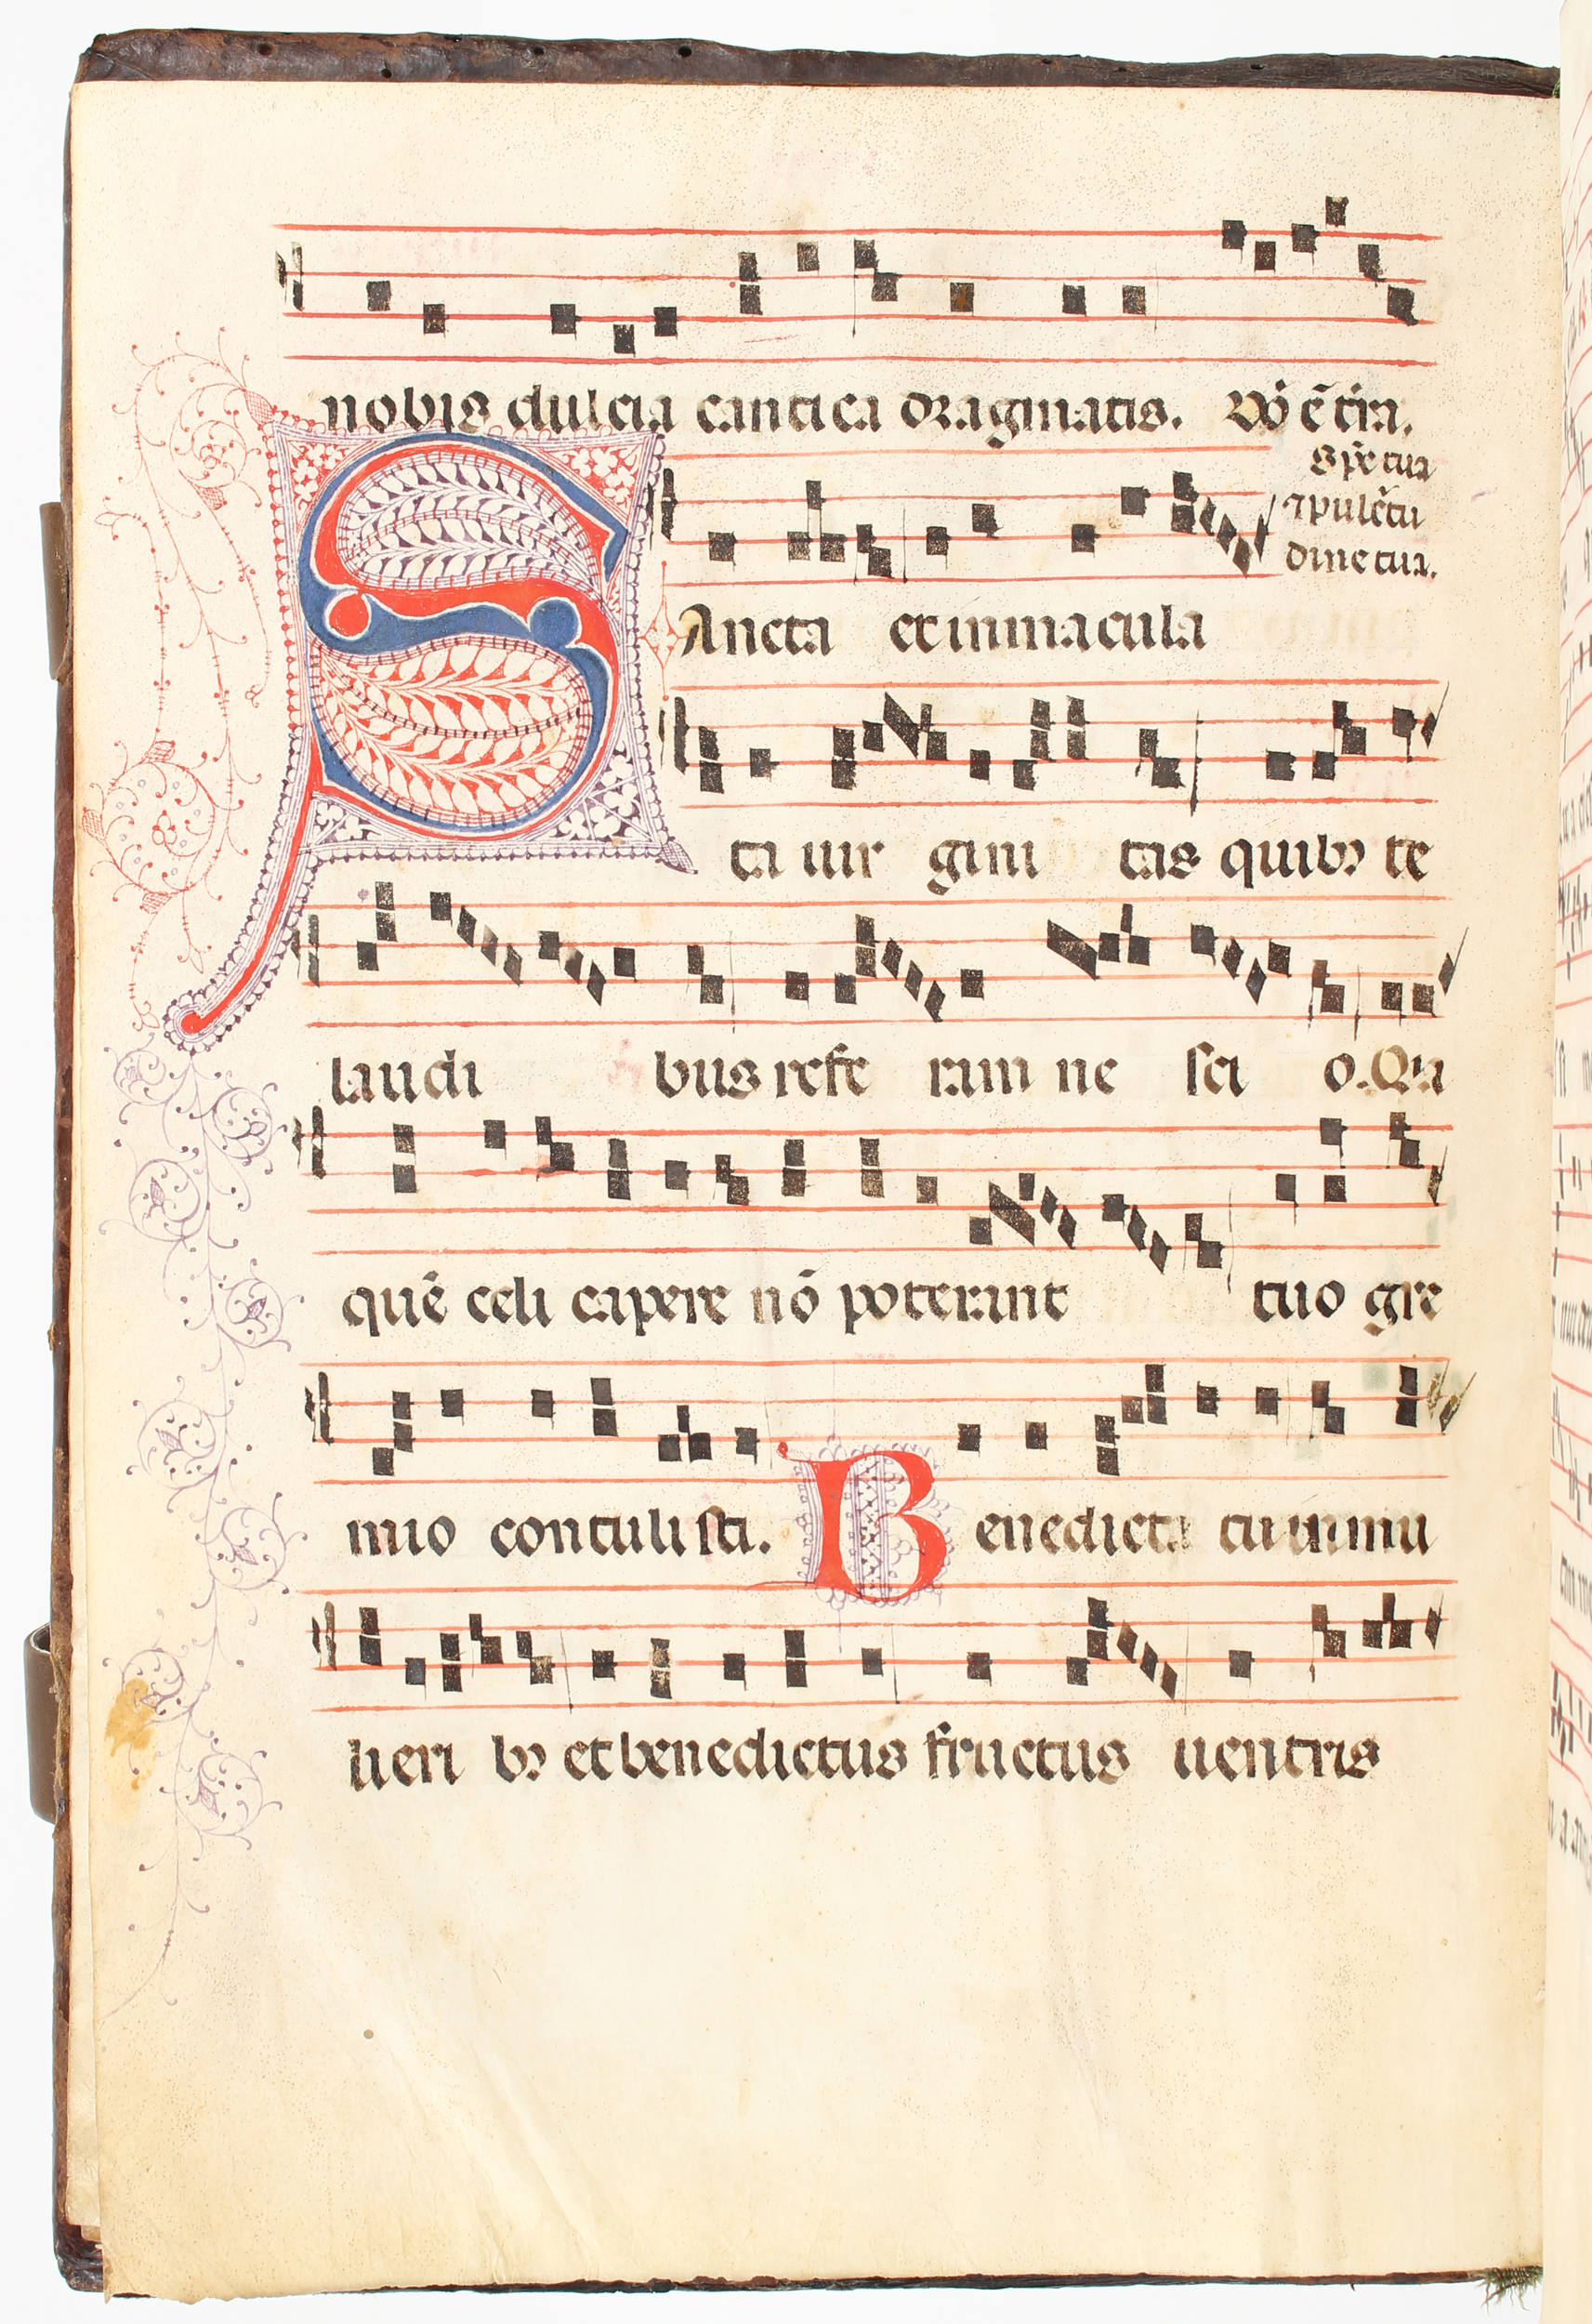 nobis dulcia cantica dragmatis. Vō ē tr̄a.
Spē tua
⁊ pulc̄tu
dine tua.
SAncta et inmacula
ta uir gini tas quibꝫ te
laudi bus refe ram ne sci o. Quia
quē celi capere nō poterant tuo gre
mio contulisti. Benedicta tu in mu
lieri bꝫ et benedictus fructus uentris